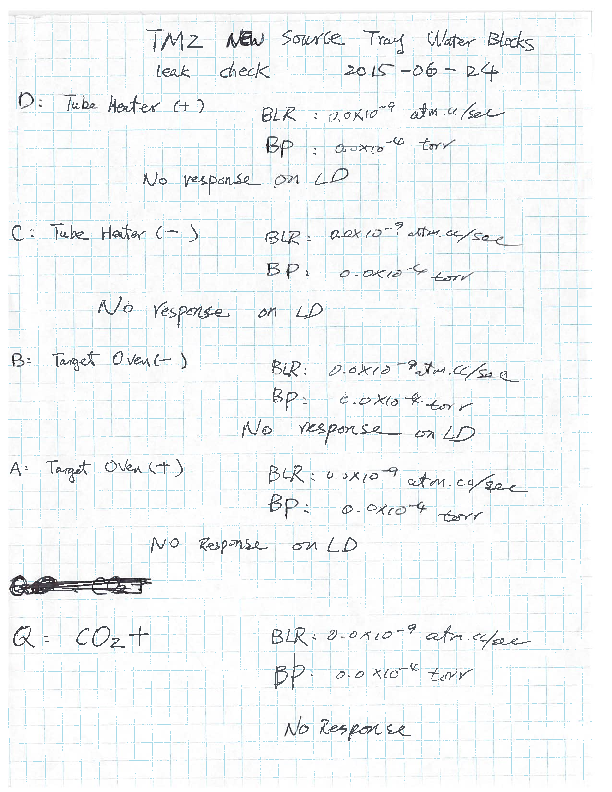 TM2 NEW Source Tray Water Blocks
leak check 2015-06-24
D: Tube Heater (+) BLR: 0.0x10⁻⁹ atm.cc/sec
BP: 0.0x10⁻⁴ torr
No response on LD
C: Tube Heater (-) BLR: 0.0x10⁻⁹ atm.cc/sec
BP: 0.0x10⁻⁴ torr
No response on LD
B: Target Oven (-) BLR: 0.0x10⁻⁹ atm.cc/sec
BP: 0.0x10⁻⁴ torr
No response on LD
A: Target Oven (+) BLR: 0.0x10⁻⁹ atm.cc/sec
BP: 0.0x10⁻⁴ torr
No Response on LD
Q: CO2+ BLR: 0.0x10⁻⁹ atm.cc/sec
BP: 0.0x10⁻⁴ torr
No Response